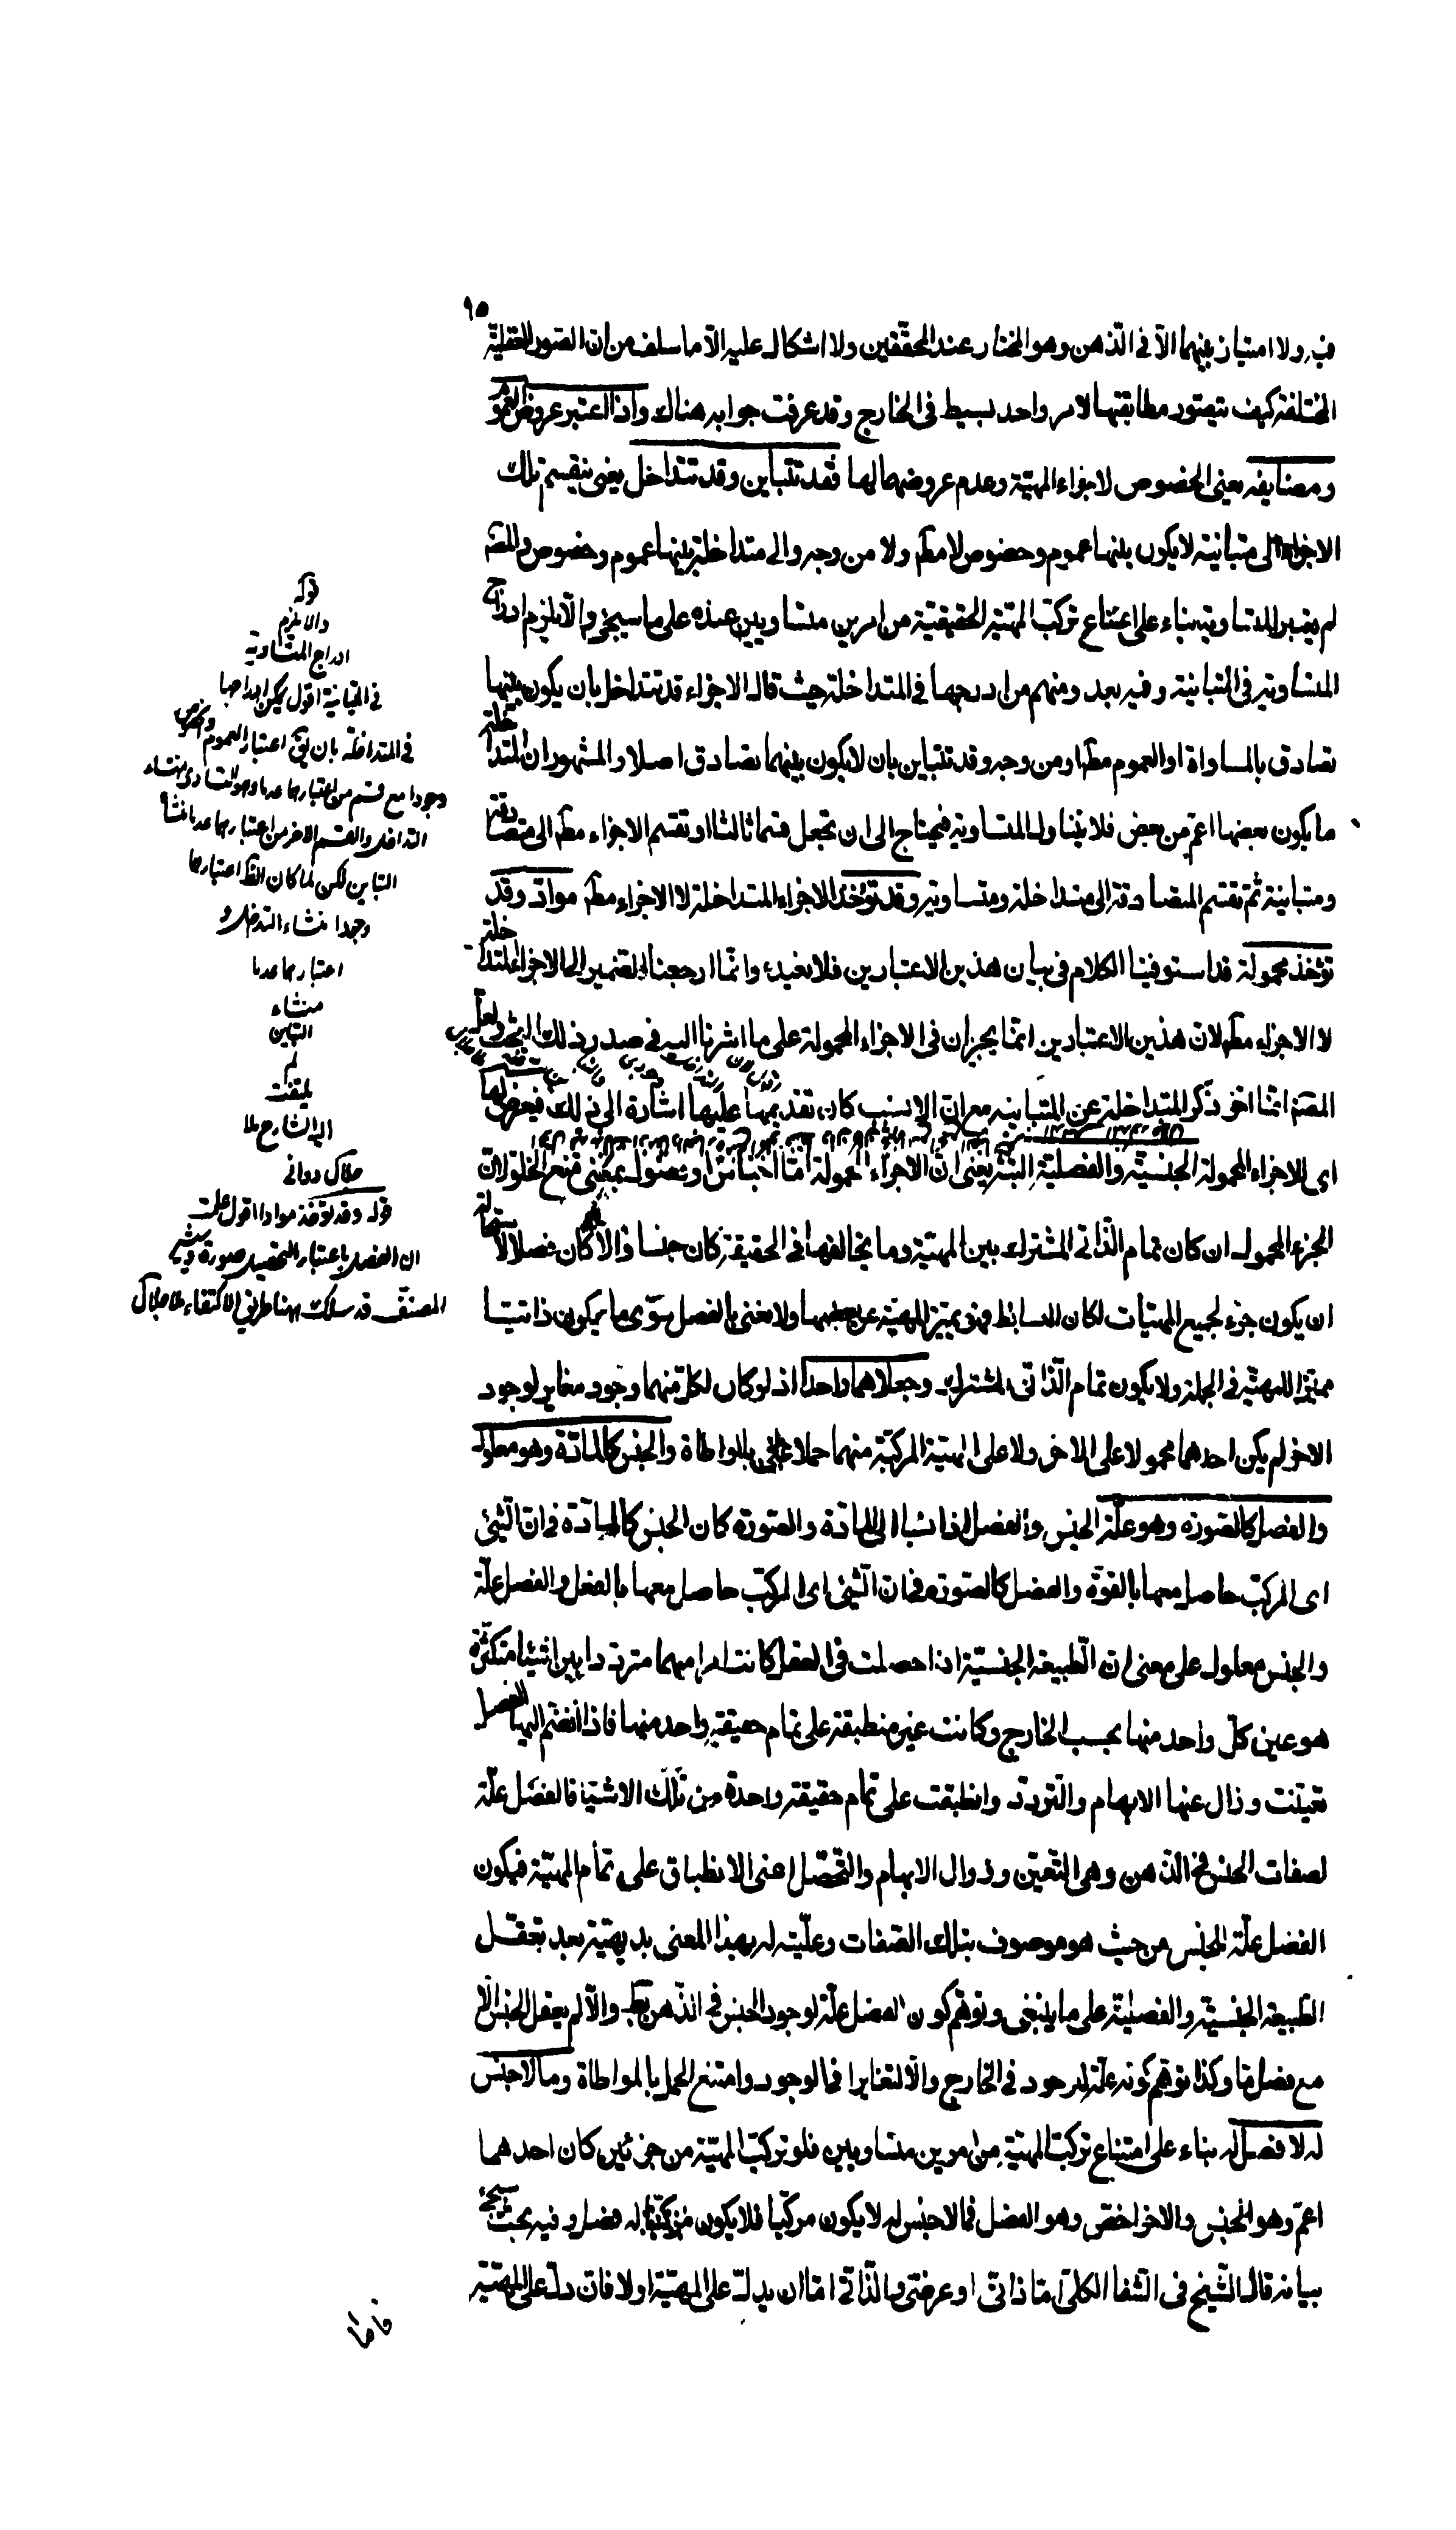 ٩٥
فيه ولا امتياز بينهما الّا فى الذّهن وهو المختار عند المحقّقين ولا اشكال عليه الّا ما سلف من ان الصّور العقليّة
المختلفة كيف يتصوّر مطابقتها لامر واحد بسيط فى الخارج وقد عرفت جوابه هناك واذا اعتبر عروض العموم
ومضايفه يعنى الخصوص لاجزاء المهيّة وعدم عروضهما لها فقد تتباين وقد تتداخل يعنى ينقسم تلك
الاجزاء الى متباينة لا يكون بينها عموم وخصوص لا مطَ ولا من وجه والى متداخلة بينها عموم وخصوص والمصَ
لم يعتبر المتساوية بناء على امتناع تركّب المهيّة الحقيقيّة من امرين متساويين عنده على ما سيجئ والّا يلزم ادراج
المتساوية فى المتباينة وفيه بعد ومنهم من ادرجها فى المتداخلة حيث قال الاجزاء قد تتداخل بان يكون بينها
تصادق بالمساواة او العموم مطَ او من وجه وقد تتباين بان لا يكون بينهما تصادق اصلا والمشهور ان المتداخلة
ما يكون بعضها اعمّ من بعض فلا يتناول المتساوية فيحتاج الى ان تجعل قسما ثالثا او تقسم الاجزاء مطَ الى متصادقة
ومتباينة ثمّ تقسم المتصادقة الى متداخلة ومتساوية وقد تؤخذ الاجزاء المتداخلة لا الاجزاء مطَ موادّ وقد
تؤخذ محمولة قد استوفينا الكلام فى بيان هذين الاعتبارين فلا نعيده وانّما ارجعنا الضمير الى الاجزاء المتداخلة
لا الاجزاء مطَ لان هذين الاعتبارين انّما يجريان فى الاجزاء المحمولة على ما اشرنا اليه فى صدر ذلك البحث ولعلّ
المصَ انّما اخر ذكر المتداخلة عن المتباينة مع ان الانسب كان تقديمها عليها اشارة الى ذلك فيعرض لها
اى للاجزاء المحمولة الجنسيّة والفصليّة البتّة يعنى انّ الاجزاء المحمولة امّا اجناس او فصول بمعنى منع الخلو لان
الجزء المحمول ان كان تمام الذّاتى المشترك بين المهيّة وما يخالفها فى الحقيقة كان جنسا والّا كان فصلا لاستحالة
ان يكون جزء لجميع المهيّات لكان البسائط فهو يميّز المهيّة عن بعضها ولا نعنى بالفصل سوى ما يكون ذاتيّا
مميّزا للمهيّة فى الجملة ولا يكون تمام الذّاتى المشترك وجعلاهما واحد اذ لو كان لكلّ منهما وجود مغاير لوجود
الاخر لم يكن احدهما محمولا على الاخر ولا على المهيّة المركّبة منهما حملا بالمواطاة والجنس كالمادّة وهو معلول
والفصل كالصّورة وهو علّة الجنس والفصل اذا نسبا الى المادّة والصّورة كان الجنس كالمادّة فان الشّئ
اى المركّب حاصل معها بالقوّة والفصل كالصّورة فان الشّئ اى المركّب حاصل معها بالفعل والفصل علّة
والجنس معلول على معنى ان الطّبيعة الجنسيّة اذا حصلت فى العقل كانت امرا مبهما متردّدا بين اشياء متكثّرة
هو عين كلّ واحد منها بحسب الخارج وكانت غير منطبقة على تمام حقيقة واحد منها فاذا انضم اليها الفصل
تعيّنت وزال عنها الابهام والتّردّد وانطبقت على تمام حقيقة واحدة من تلك الاشياء فالفصل علّة
لصفات الجنس فى الذّهن وهى التّعيّن وزوال الابهام والتّحصّل اعنى الانطباق على تمام المهيّة فيكون
الفصل علّة للجنس من حيث هو موصوف بتلك الصّفات وعلّيّته له بهذا المعنى بديهيّة بعد تعقّل
الطّبيعة الجنسيّة والفصليّة على ما ينبغى وتوهّم كون الفصل علّة لوجود الجنس فى الذّهن بطَ والّا لم يعقل الجنس الّا
مع فصل مّا وكذا توهّم كونه علّة لوجوده فى الخارج والّا لتغايرا فى الوجود وامتنع الحمل بالمواطاة وما لا جنس
له لا فصل له بناء على امتناع تركّب المهيّة من امرين متساويين فلو تركّب المهيّة من جزئين كان احدهما
اعمّ وهو الجنس والاخر اخصّ وهو الفصل فما لا جنس له لا يكون مركّبا فلا يكون له فصل وفيه بحث سيجئ
بيانه قال الشّيخ فى الشّفا الكلّى امّا ذاتى او عرضى والذّاتى امّا ان يدلّ على المهيّة او لا فان دلّ على المهيّة
قوله
والا يلزم
ادراج المتساوية
فى المتباينة اقول يمكن ادراجها
فى المتداخلة بان يقَ اعتبار العموم والخصوص
وجودا مع قسم من اعتبارها عدما وهو التساوى منشاء
التداخل والقسم الاخر من اعتبارها عدما منشاء
التباين لكن لما كان الظَ اعتبارها
وجودا منشاء التداخل و
اعتبارها عدما
منشاء
التباين
لم
يلتفت
اليه الشارح ملا
جلال دوانى
قوله وقد تؤخذ موادا اقول علمت
ان الفصل باعتبار التحصيل صورة
المصنف قد سلك ههنا طريق الاكتفاء ملا جلال
فاما